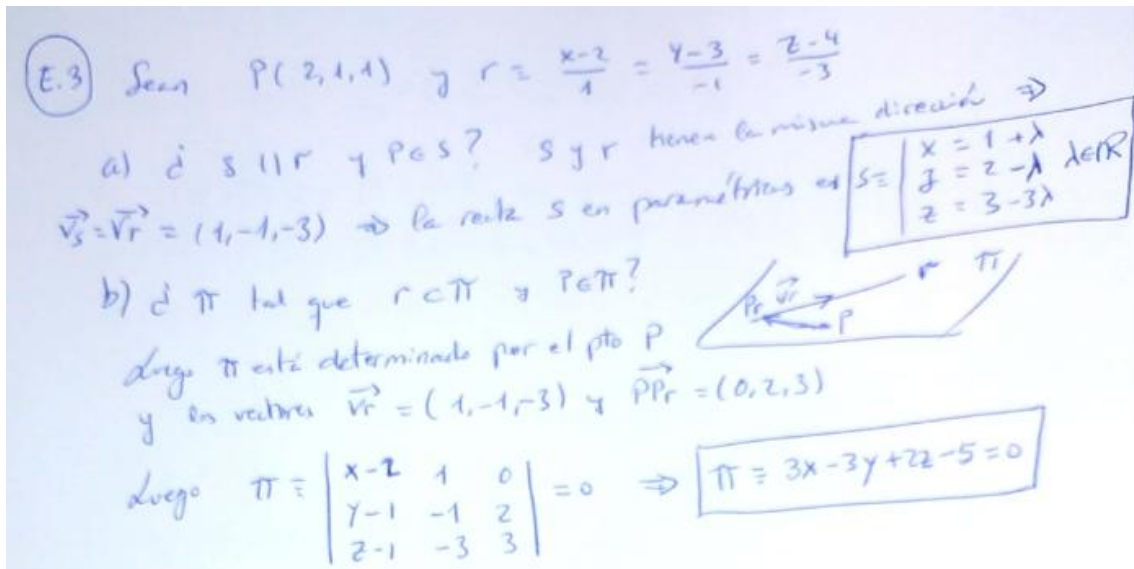 E.3 Sean P(2,1,1) y r ≡ x-2/1 = y-3/-1 = z-4/-3
a) ¿ s || r y P∈s? s y r tienen la misma dirección ⇒
v⃗s = v⃗r = (1,-1,-3) ⇒ la recta s en paramétricas es s ≡ | x = 1+λ
y = 2-λ λ∈ℝ
z = 3-3λ
b) ¿ π tal que r⊂π y P∈π?
Pr v⃗r r π
P
Luego π está determinado por el pto P
y los vectores v⃗r = (1,-1,-3) y PPr⃗ = (0,2,3)
Luego π ≡ | x-2 1 0 | = 0 ⇒ π ≡ 3x-3y+2z-5=0
| y-1 -1 2 |
| z-1 -3 3 |